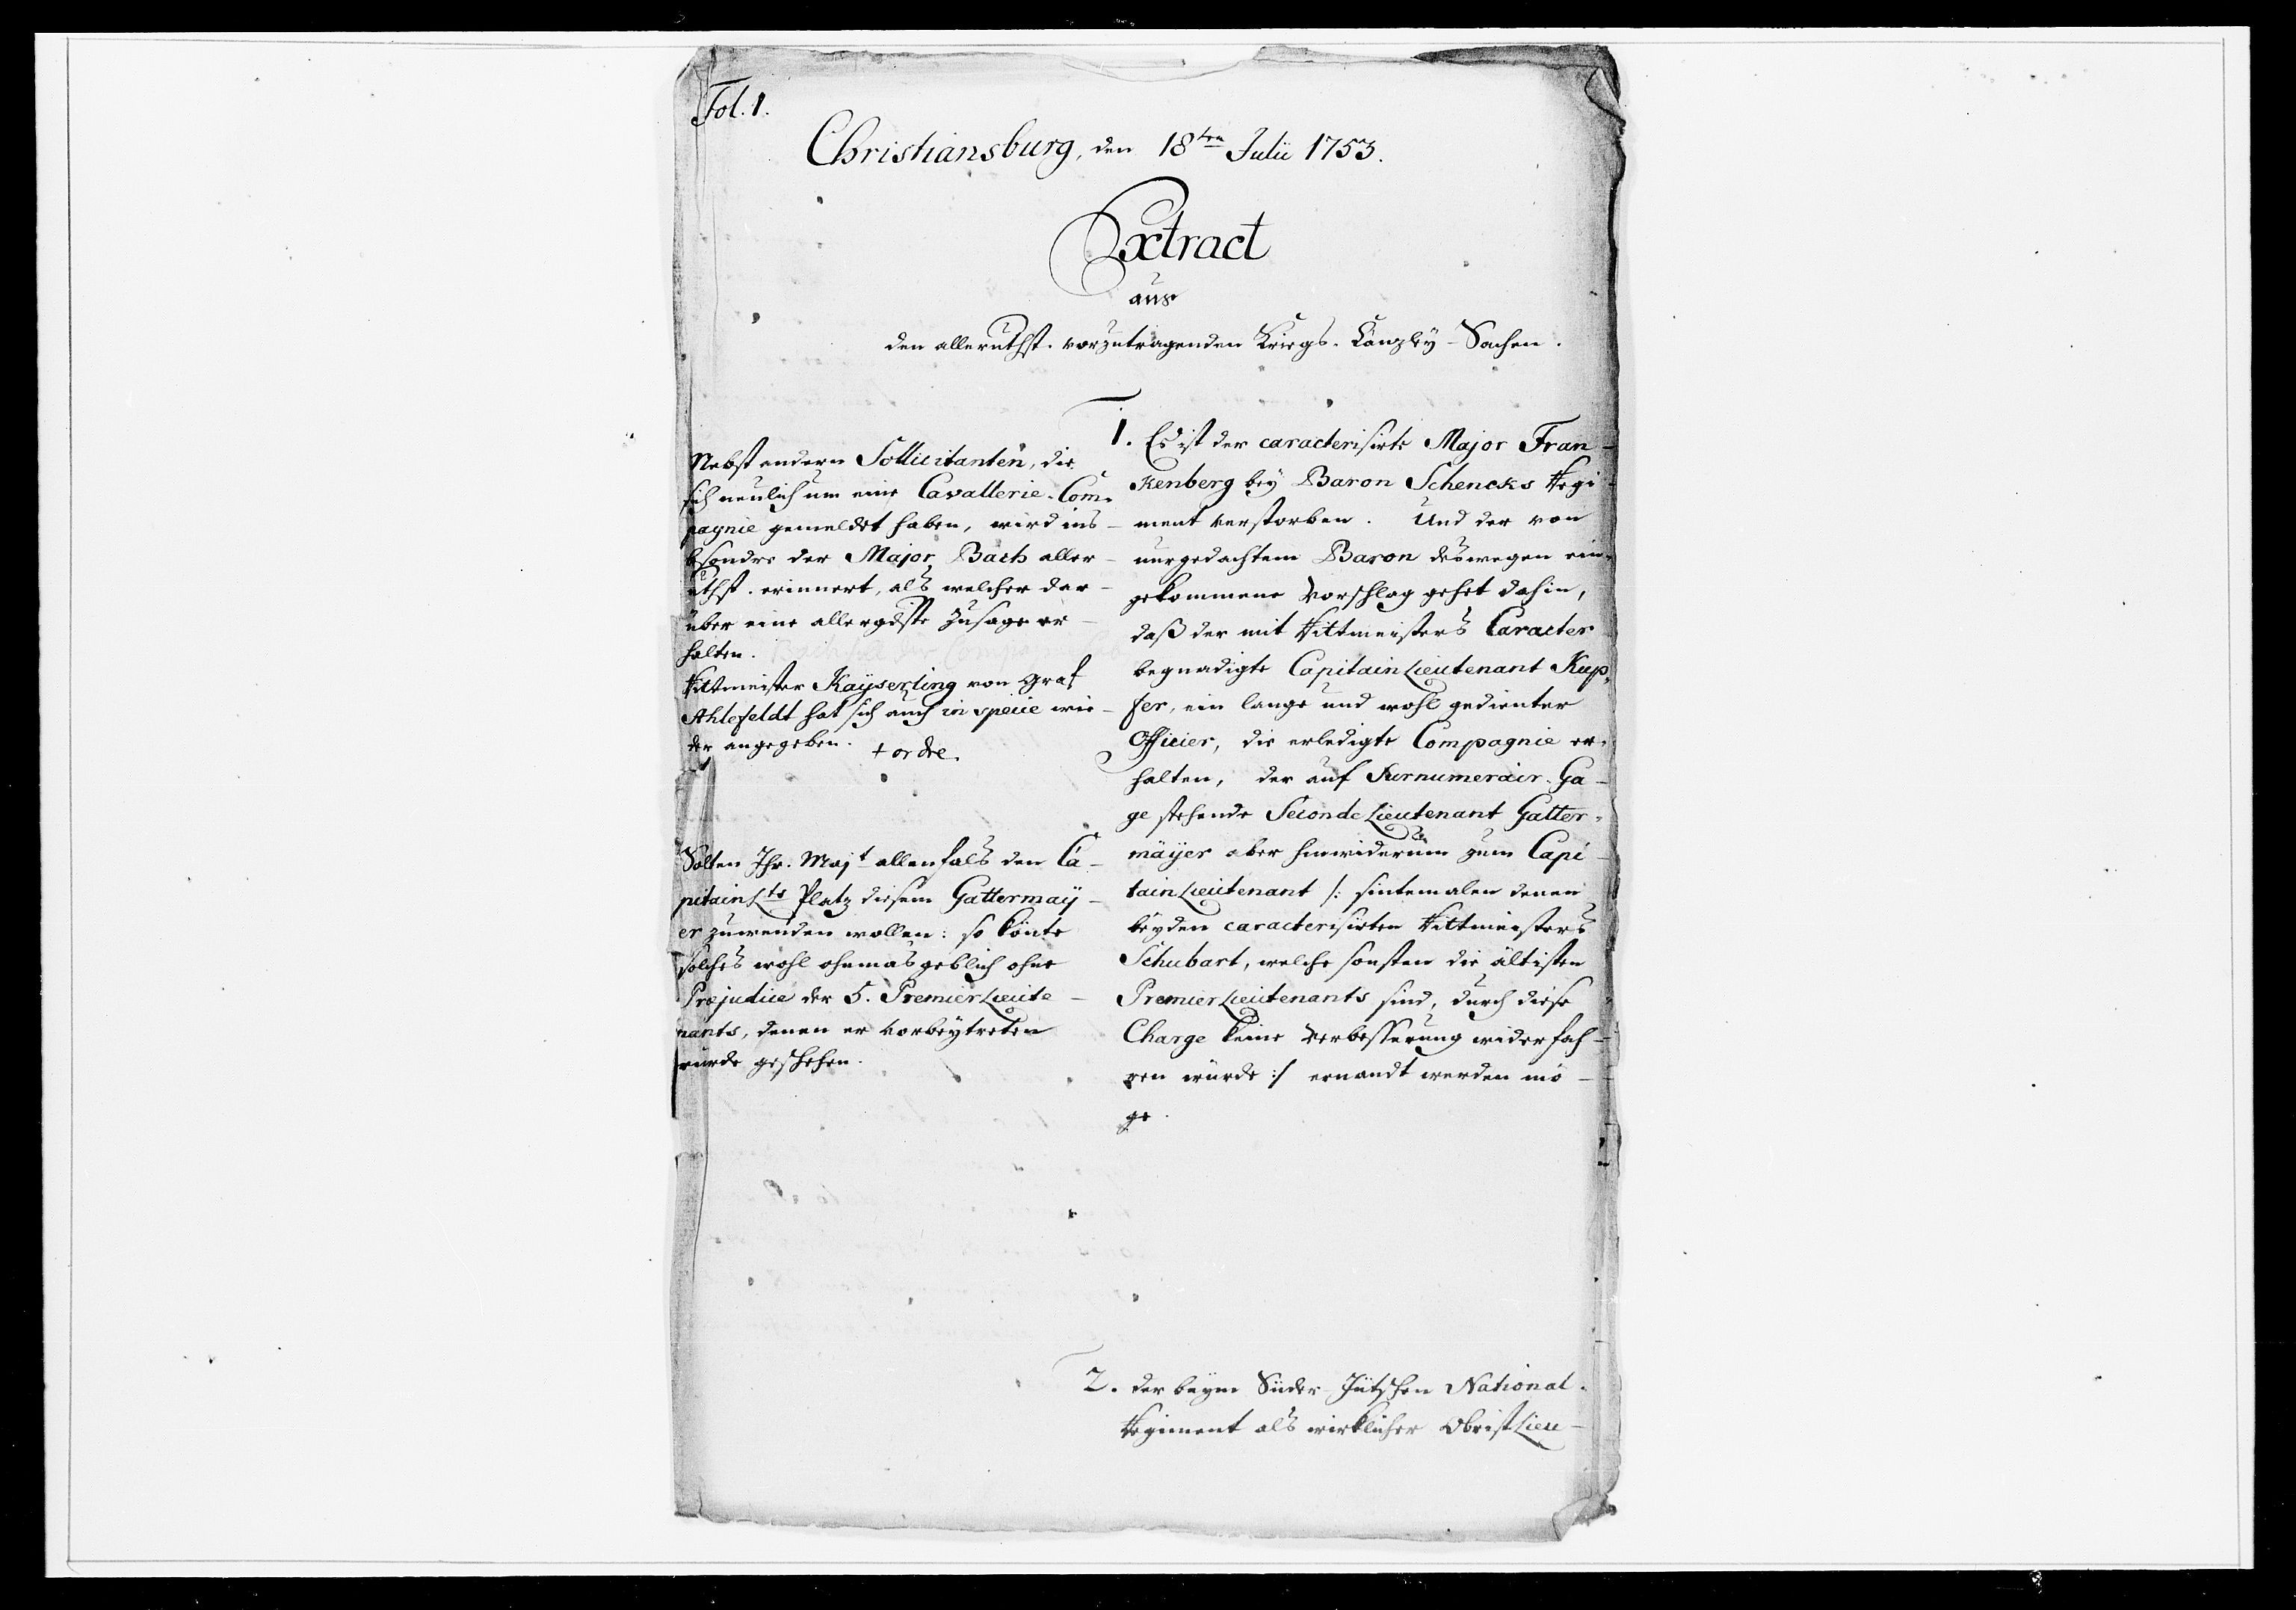 Fol. 1.
Christiansburg, den 18ten Julii 1753.
Extract
aus
den alleruthst. vorzutragenden Kriegs-Canzley-Sachen.
Nebst andern Sollicitanten, die
sich neulich um eine Cavallerie-Com-
pagnie gemeldet haben, wird ins-
besondre der Major Bach aller-
uthst. erinnert, als welcher dar-
über eine allergdste Zusage er-
halten.
Bach soll die Compagnie
Rittmeister Kayserling von Graf
Ahlefeldt hat sich auch in specie wie-
der angegeben.
+ ordre.
Solten Ihr. Majt allenfals den Ca-
pitainLts Platz diesem Gattermaÿ-
er zuwenden wollen: so könte
solches wohl ohnmasgeblich ohne
Præjudice der 5. PremierLieute-
nants, denen er vorbeytreten
würde geschehen.
1. Es ist der caracterisirte Major Fran-
kenberg bey Baron Schencks Regi-
ment verstorben. Und der von
nurgedachtem Baron deswegen ein-
gekommene Vorschlag gehet dahin,
daß der mit Rittmeisters Caracter
begnadigte CapitainLieutenant Kup-
fer, ein lange und wohl gedienter
Officier, die erledigte Compagnie er-
halten, der auf Surnumerair-Ga-
ge stehende SecondeLieutenant Gatter-
mäÿer aber hinwiderum zum Capi-
tainLieutenant /: sintemalen denen
beyden caracterisirten Rittmeisters
Schubart, welche sonsten die ältisten
PremierLieutenants sind, durch diese
Charge keine Verbesserung widerfah-
ren würde :/ ernandt werden mö-
ge.
2. der beym Süder-Jütschen National-
Regiment als wirklicher ObristLieu-